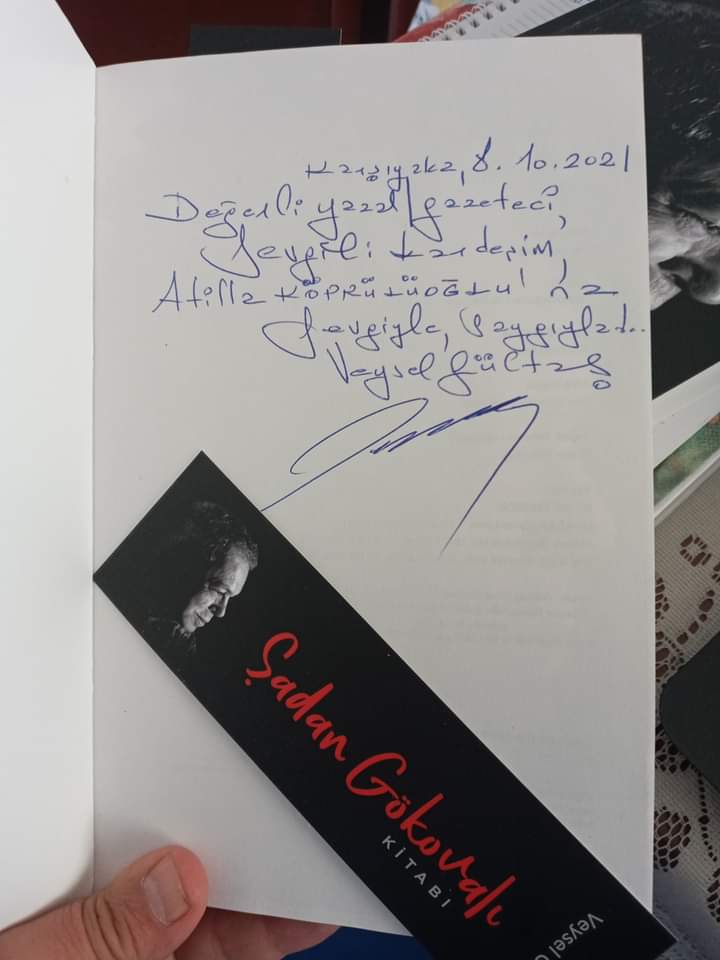 Karşıyaka, 8.10.2021
Değerli yazar/gazeteci,
Sevgili Kardeşim,
Atilla KÖPRÜLÜOĞLU'na
Sevgiyle, Saygıyla...
Veysel Gültaş
Şadan Gökovalı
KİTABI
Veysel G